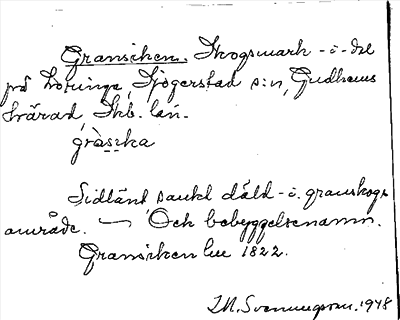 Gransiken. Skogsmark - o - del
på Lövinge, Sjögerstad s:n, Gudhems
härad, Skb. län.
gràsska
Sidlänt sankt däld - o. granskogs
område. — Och bebyggelsenamn.
Gransiken lht 1822.
I.M. Svenningson. 1948